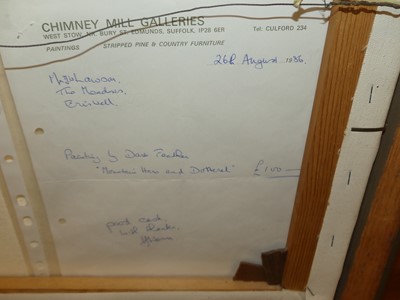 CHIMNEY MILL GALLERIES
WEST STOW, NR. BURY ST. EDMUNDS, SUFFOLK, IP28 6ER Tel: CULFORD 234
PAINTINGS STRIPPED PINE & COUNTRY FURNITURE
26th August 1986
The
Eriswell
Painting by
"Mountain Hare and Dotterel" £100
paid cash